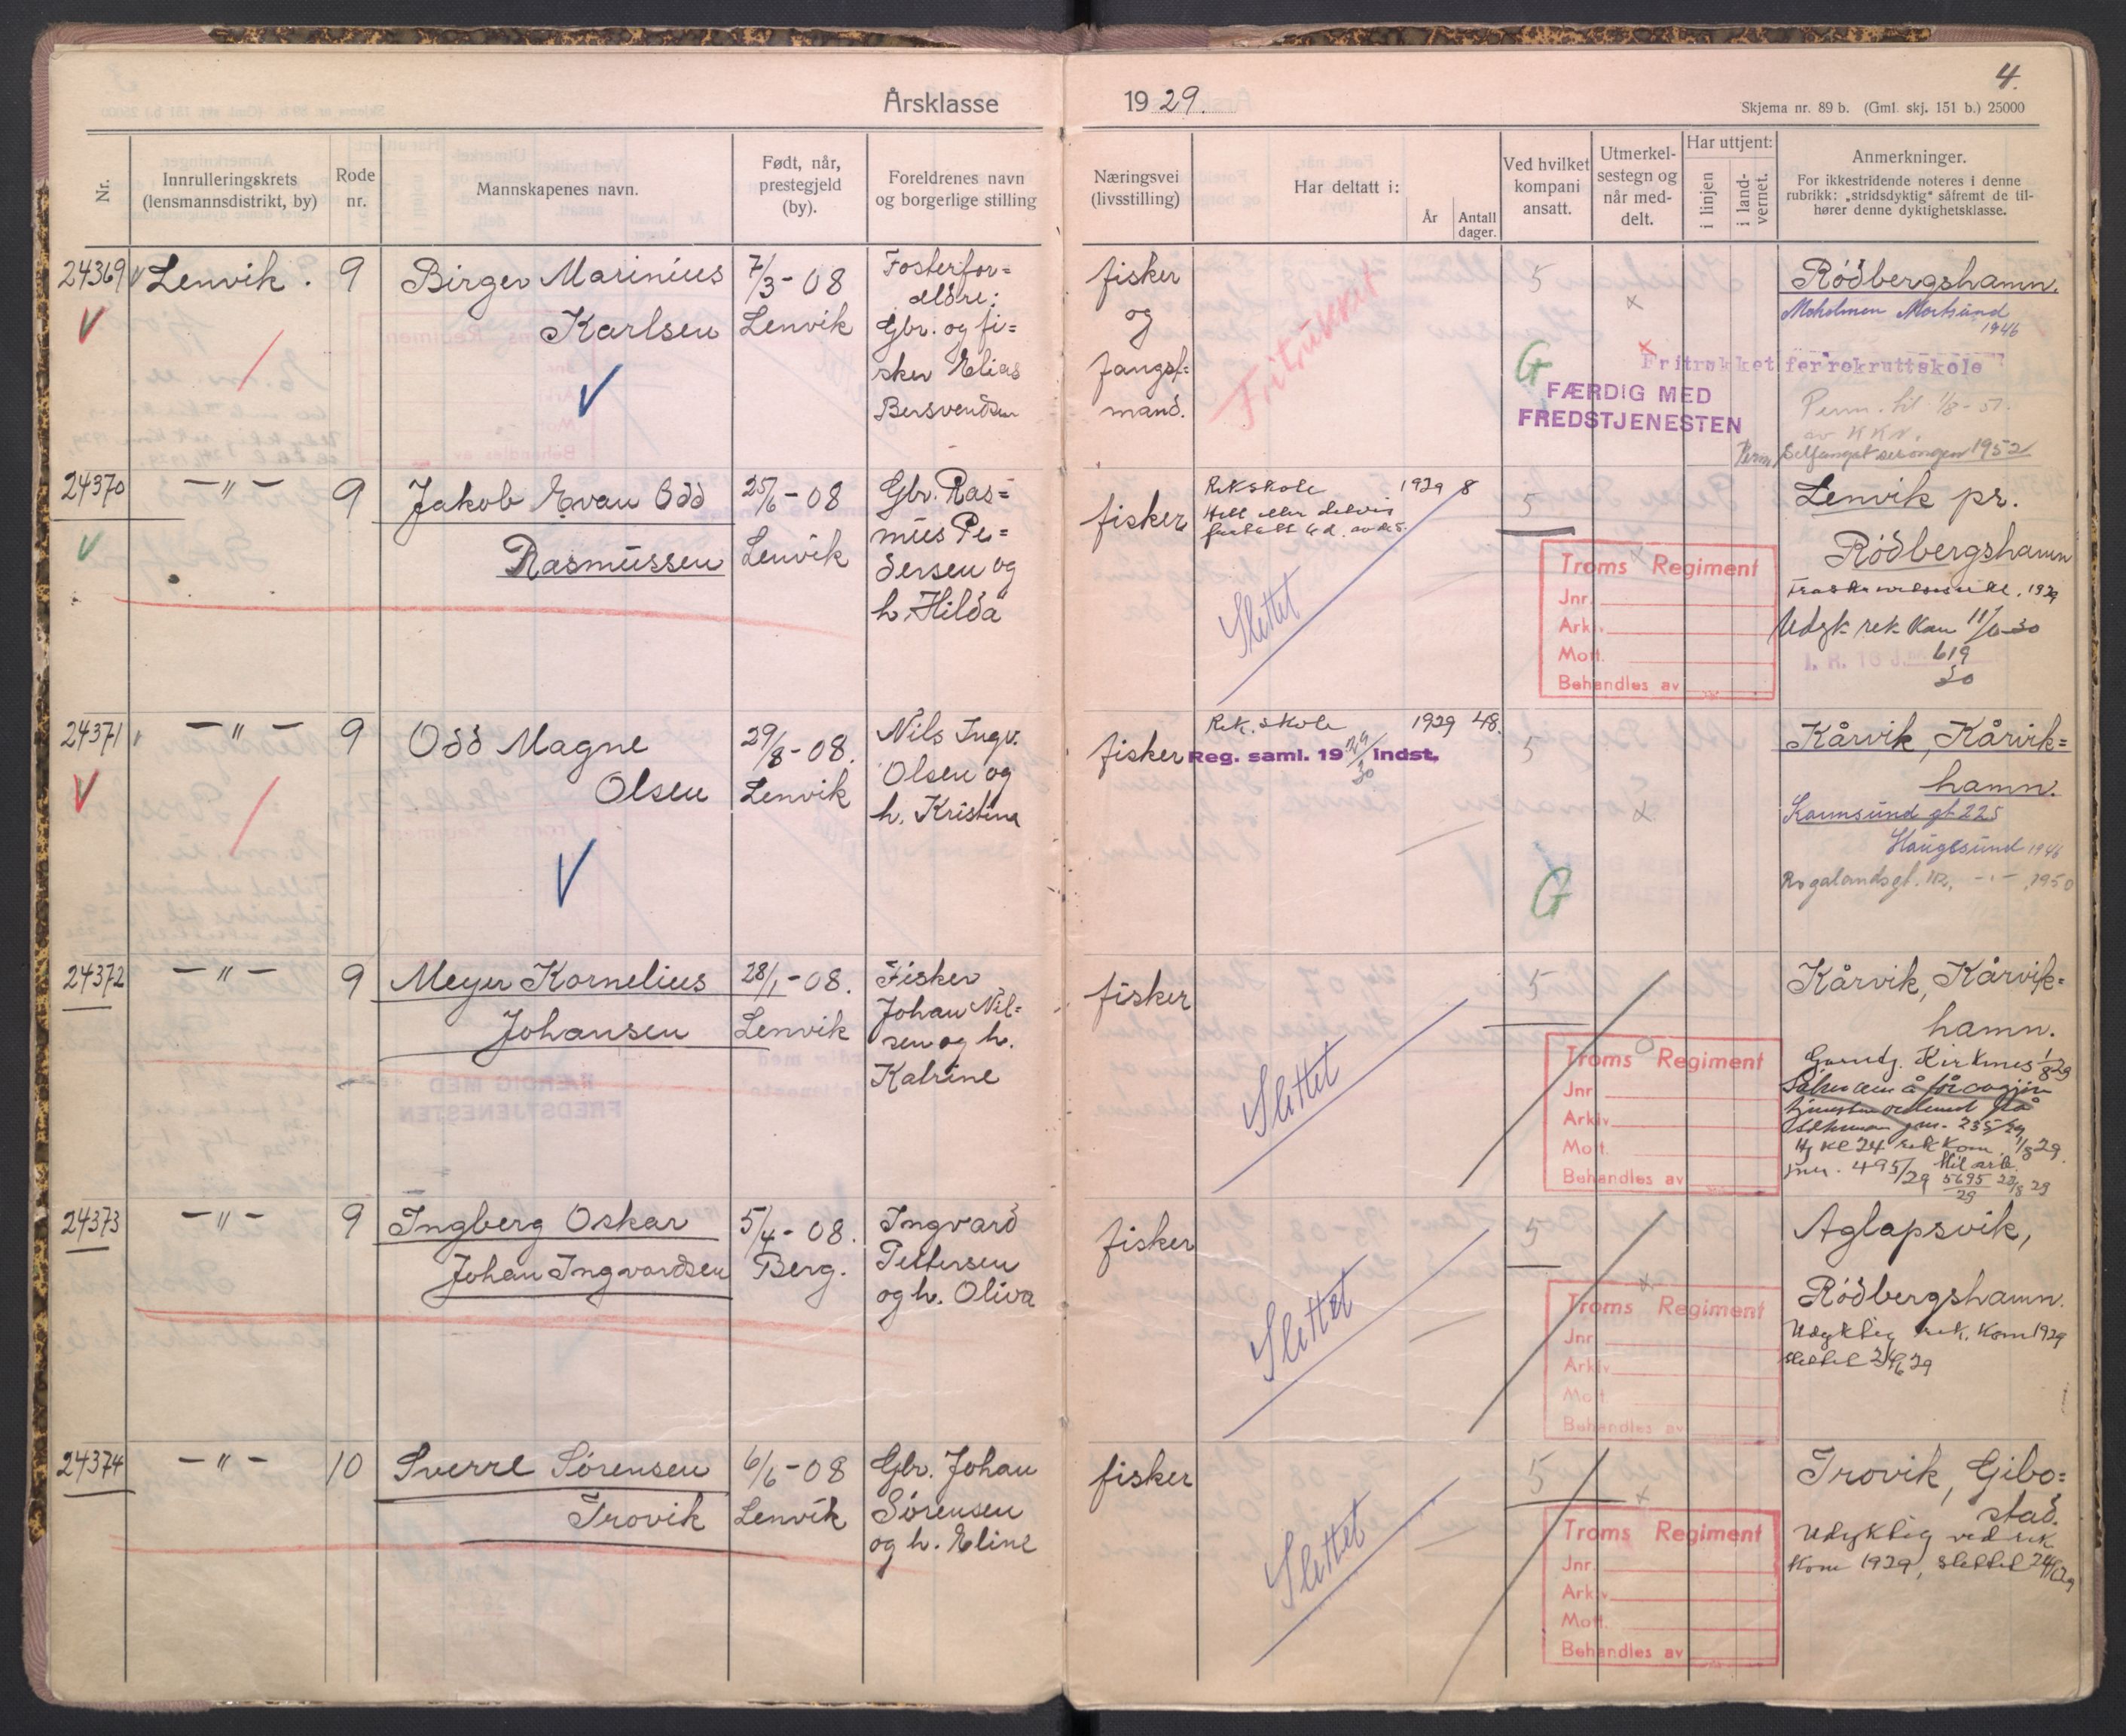 Årsklasse
1929.
4.
Skjema nr. 89 b. (Gml. skj. 151 b.) 25000
Nr.
Innrulleringskrets
(lensmannsdistrikt, by)
Rode
nr.
Mannskapenes navn.
Født, når,
prestegjeld
(by).
Foreldrenes navn
og borgerlige stilling
Næringsvei
(livsstilling)
Har deltatt i:
År
Antall
dager.
Ved hvilket
kompani
ansatt.
Utmerkel-
sestegn og
når med-
delt.
Har uttjent:
i linjen
i land-
vernet.
Anmerkninger.
For ikkestridende noteres i denne
rubrikk: „stridsdyktig“ såfremt de til-
hører denne dyktighetsklasse.
24369 Lenvik. 9
Birger Marinius
Karlsen
7/3-08
Lenvik
Fosterfor=
eldre:
Gbr. og fi=
sker Elias
Bersvendsen
fisker
og
fangst=
mand.
Fritrukket
5
G
Fritrukket for rekruttskole
FÆRDIG MED
FREDSTJENESTEN
Rödbergshamn.
Moholmen Mortsund
1946
Perm. til 1/8-51.
av KKN.
Perm. Selfangst sesongen 1952
24370 -"- 9
Jakob Evan Odd
Rasmussen
25/6-08
Lenvik
Gbr. Ras=
mus Pe=
dersen og
h. Hilda
fisker
Rekskole 1929 8
Helt eller delvis
5
Slettet
Troms Regiment
Jnr.
Arkiv
Mott.
Behandles av
Lenvik pr.
Rödbergshamn
1929
Udyk rek. Kom 11/6-30
I. R. 16 Jnr. 619
30
24371 -"- 9
Odd Magne
Olsen
29/8-08.
Lenvik
Nils Ingv.
Olsen og
h. Kristina
fisker
Rek. skole 1929 48.
Reg. saml. 19 29/30 indst.
5
G
Kårvik, Kårvik=
hamn.
Karmsund gt 225
Haugesund 1946
Rogalandsgt. 112, -"- 1950
24372 -"- 9
Meyer Kornelius
Johansen
28/1-08.
Lenvik
Fisker
Johan Nil=
sen og h.
Katrine
fisker
5
Slettet
Troms Regiment
Jnr.
Arkiv
Mott.
Behandles av
Kårvik, Kårvik=
hamn.
Garntj. Kirkenes 1/8 29
jnr. 235/29
Kl 24 rek kom. 1/8 29.
jnr. 495/29
5695 23/8 29
29
24373 -"- 9
Ingberg Oskar
Johan Ingvardsen
5/4-08.
Berg.
Ingvard
Pettersen
og h. Oliva
fisker
5
Slettet
Troms Regiment
Jnr.
Arkiv
Mott
Behandles av
Aglapsvik,
Rödbergshamn.
Udyktig rek. Kom 1929
slettet 24/6 29
24374 -"- 10
Sverre Sörensen
Trovik
6/6-08
Lenvik
Gbr. Johan
Sörensen
og h. Eline
fisker
5
Slettet
Troms Regiment
Jnr.
Arkiv
Mott.
Behandles av
Trovik, Gibo=
stad.
Udyktig ved rek
Kom 1929, slettet 24/6 29